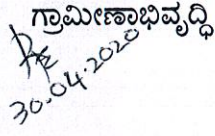 ಗ್ರಾಮೀಣಾಭಿವೃದ್ಧಿ
30.04.2020